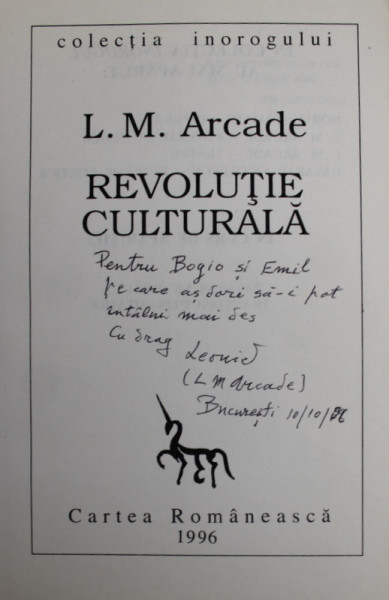 colecția inorogului
L. M. Arcade
REVOLUŢIE
CULTURALĂ
Pentru Bogio și Emil
pe care aș dori să-i pot
întâlni mai des
Cu drag Leonid
(L M Arcade)
București 10/10/96
Cartea Românească
1996